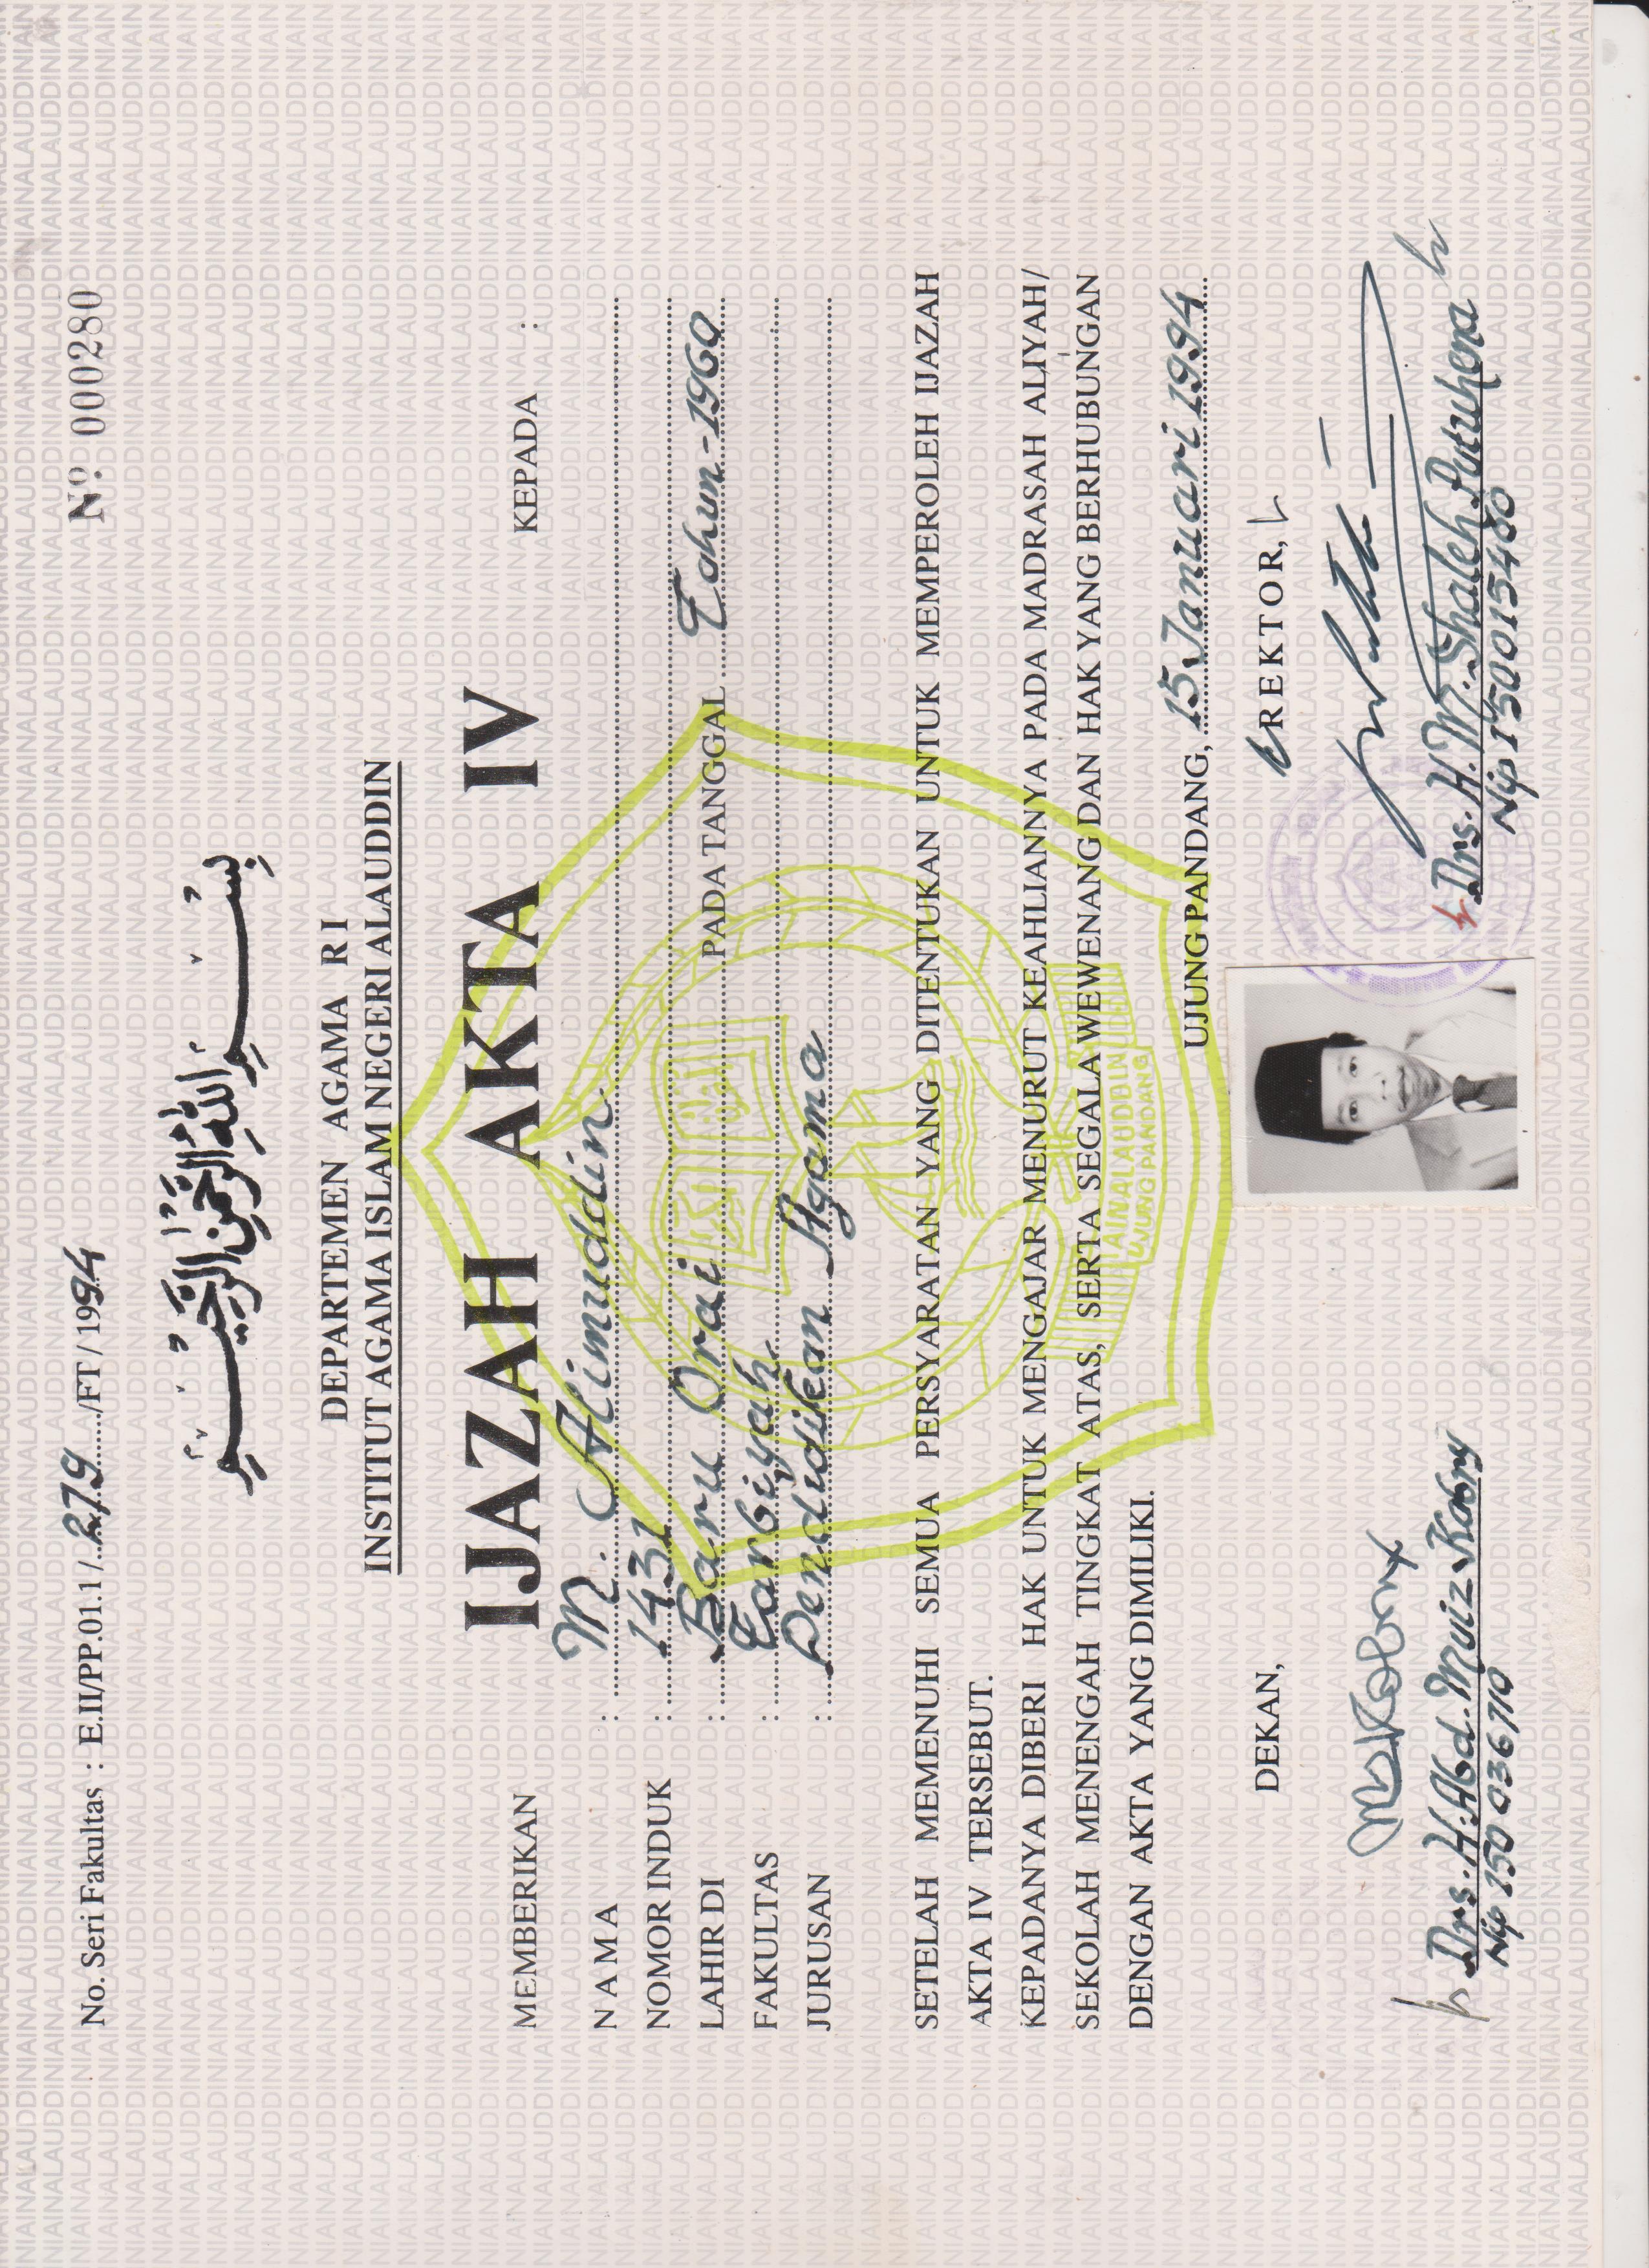 No. Seri Fakultas : E.II/PP.01.1/.279....../FT / 1994
Nº 000280
بسم الله الرحمن الرحيم
DEPARTEMEN AGAMA R I
INSTITUT AGAMA ISLAM NEGERI ALAUDDIN
IJAZAH AKTA IV
MEMBERIKAN KEPADA :
N A M A : M. Alimuddin
NOMOR INDUK : 1431
LAHIR DI : Baru Orai PADA TANGGAL Tahun - 1960
FAKULTAS : Tarbiyah
JURUSAN : Pendidikan Agama
SETELAH MEMENUHI SEMUA PERSYARATAN YANG DITENTUKAN UNTUK MEMPEROLEH IJAZAH
AKTA IV TERSEBUT.
KEPADANYA DIBERI HAK UNTUK MENGAJAR MENURUT KEAHLIANNYA PADA MADRASAH ALIYAH/
SEKOLAH MENENGAH TINGKAT ATAS, SERTA SEGALA WEWENANG DAN HAK YANG BERHUBUNGAN
DENGAN AKTA YANG DIMILIKI.
UJUNG PANDANG, 15 Januari 1994
DEKAN,
REKTOR,
Drs. H. Abd. Muiz Kabry
Nip 150 036 710
Drs. H. M. Shaleh Putuhena
Nip 150015480
IAIN ALAUDDIN
UJUNG PANDANG